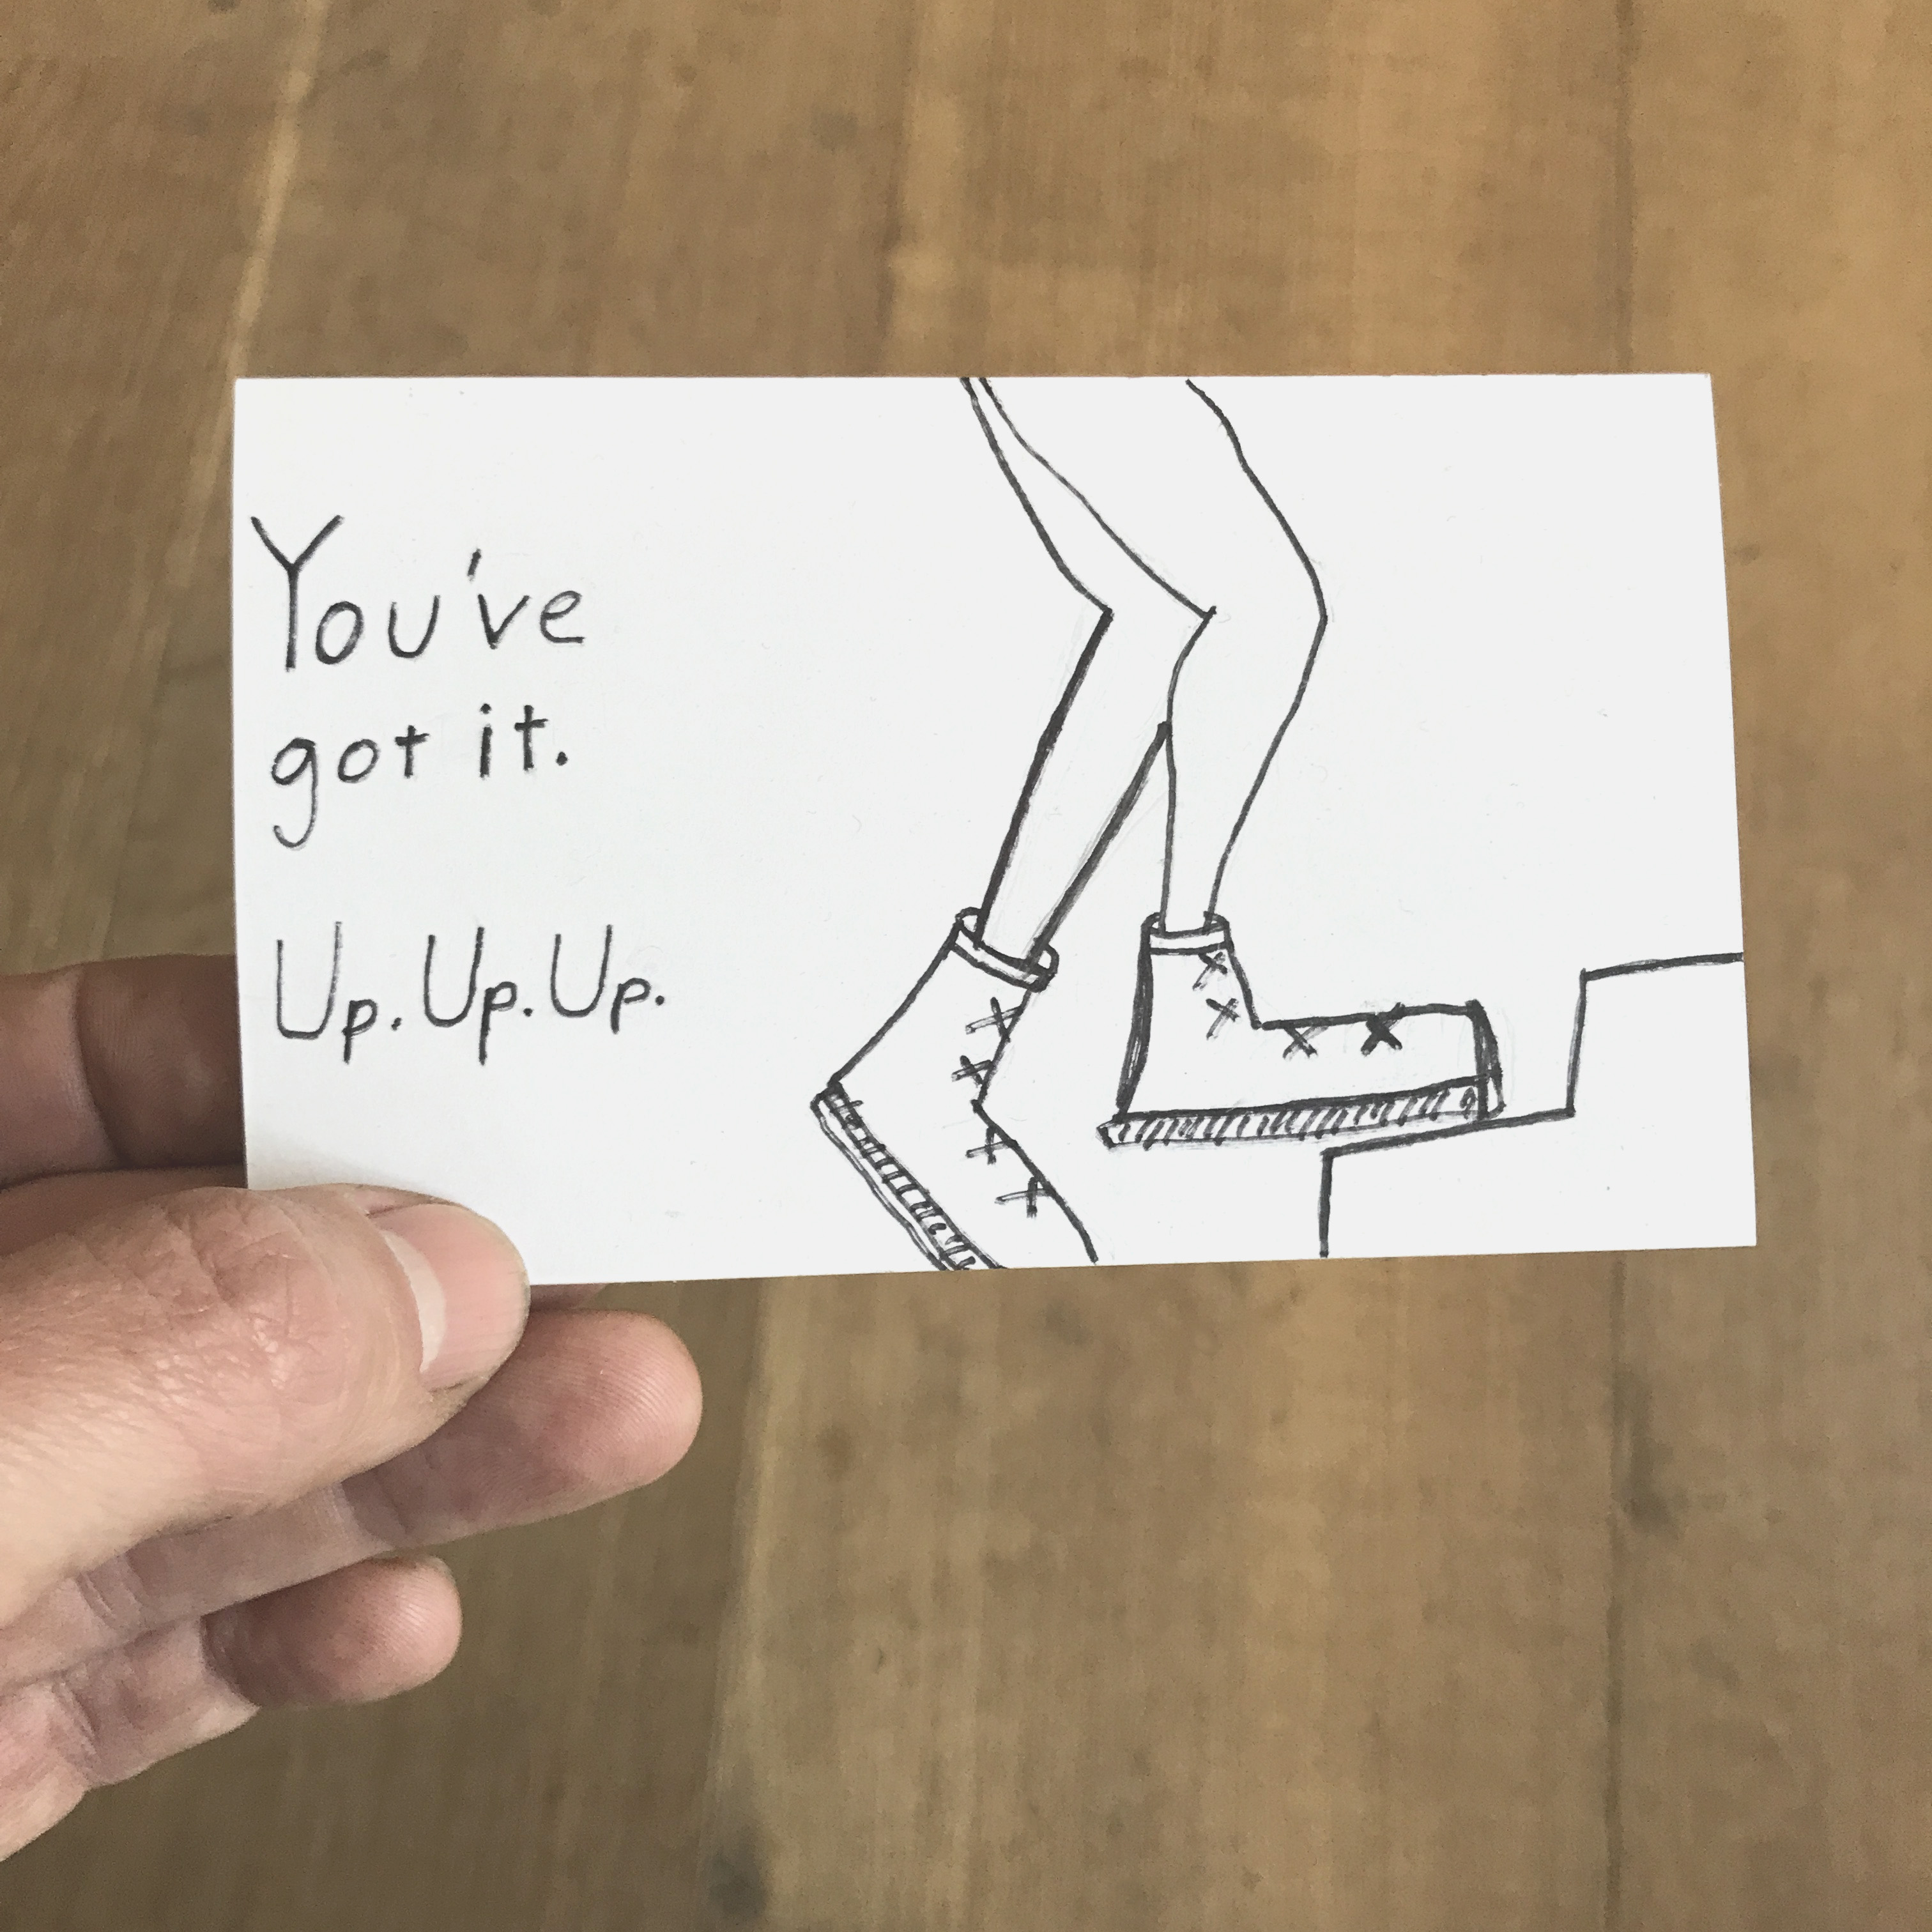 You've
got it.
Up. Up. Up.